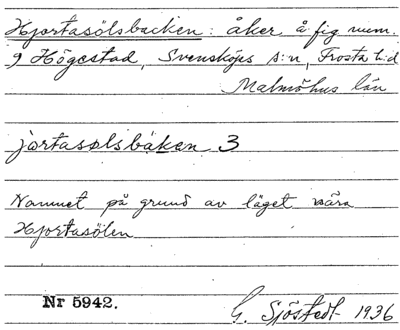 Hjortasölsbacken: åker å fig num.
9 Högestad, Svensköps s:n, Frosta h:d
Malmöhus län
jortasølsbakən 3
Namnet på grund av läget nära
Hjortasölen
Nr 5942.
G. Sjöstedt 1936